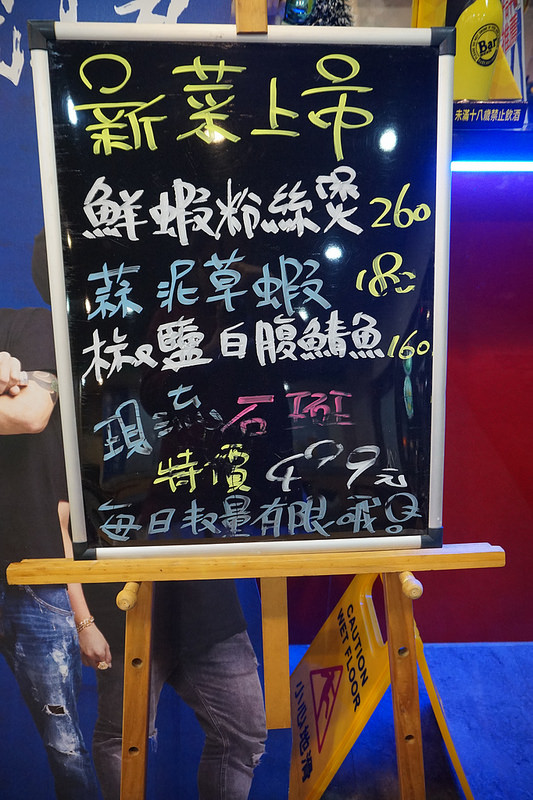 最新菜上市
鮮蝦粉絲煲 260
蒜泥草蝦 180
椒鹽白腹鯖魚 160
現流石斑
特價 499元
每日数量有限哦!
Bar
未滿十八歲禁止飲酒
CAUTION
WET FLOOR
小心地滑